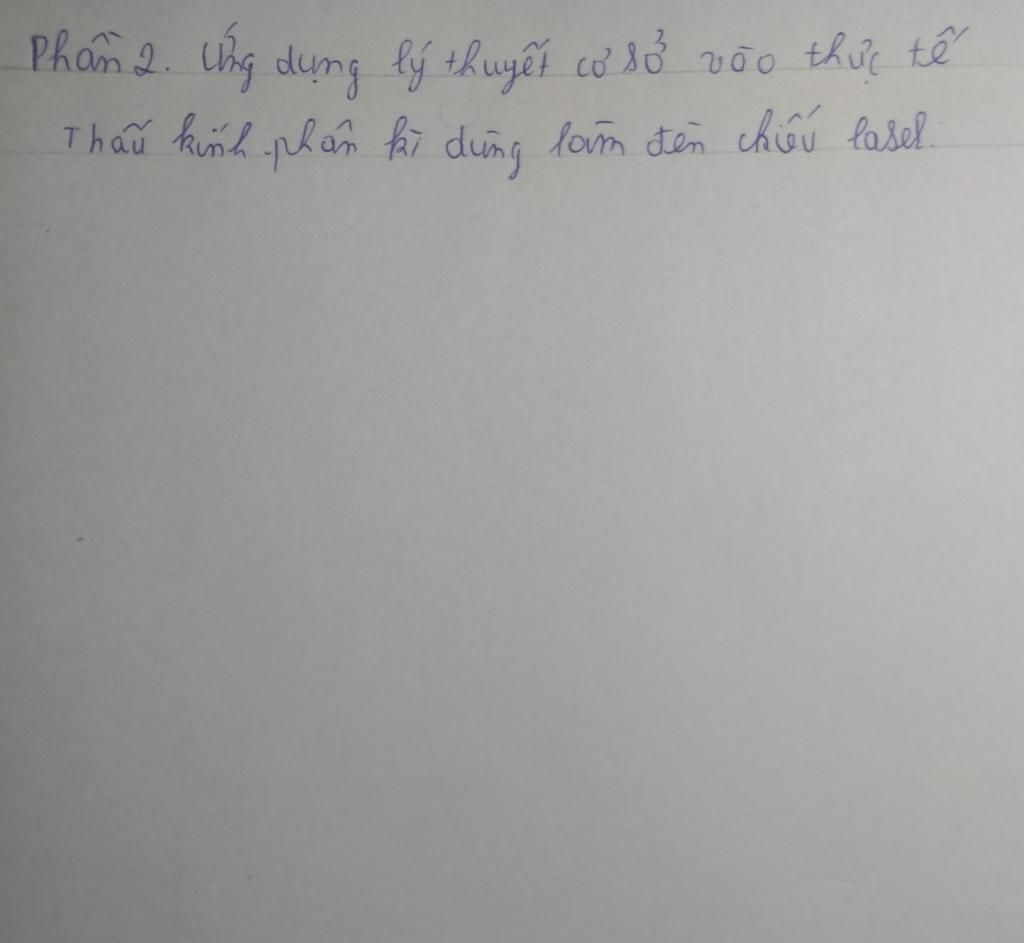 Phần 2. Ứng dụng lý thuyết cơ sở vào thực tế
Thấu kính phân kì dùng làm đèn chiếu lasel.